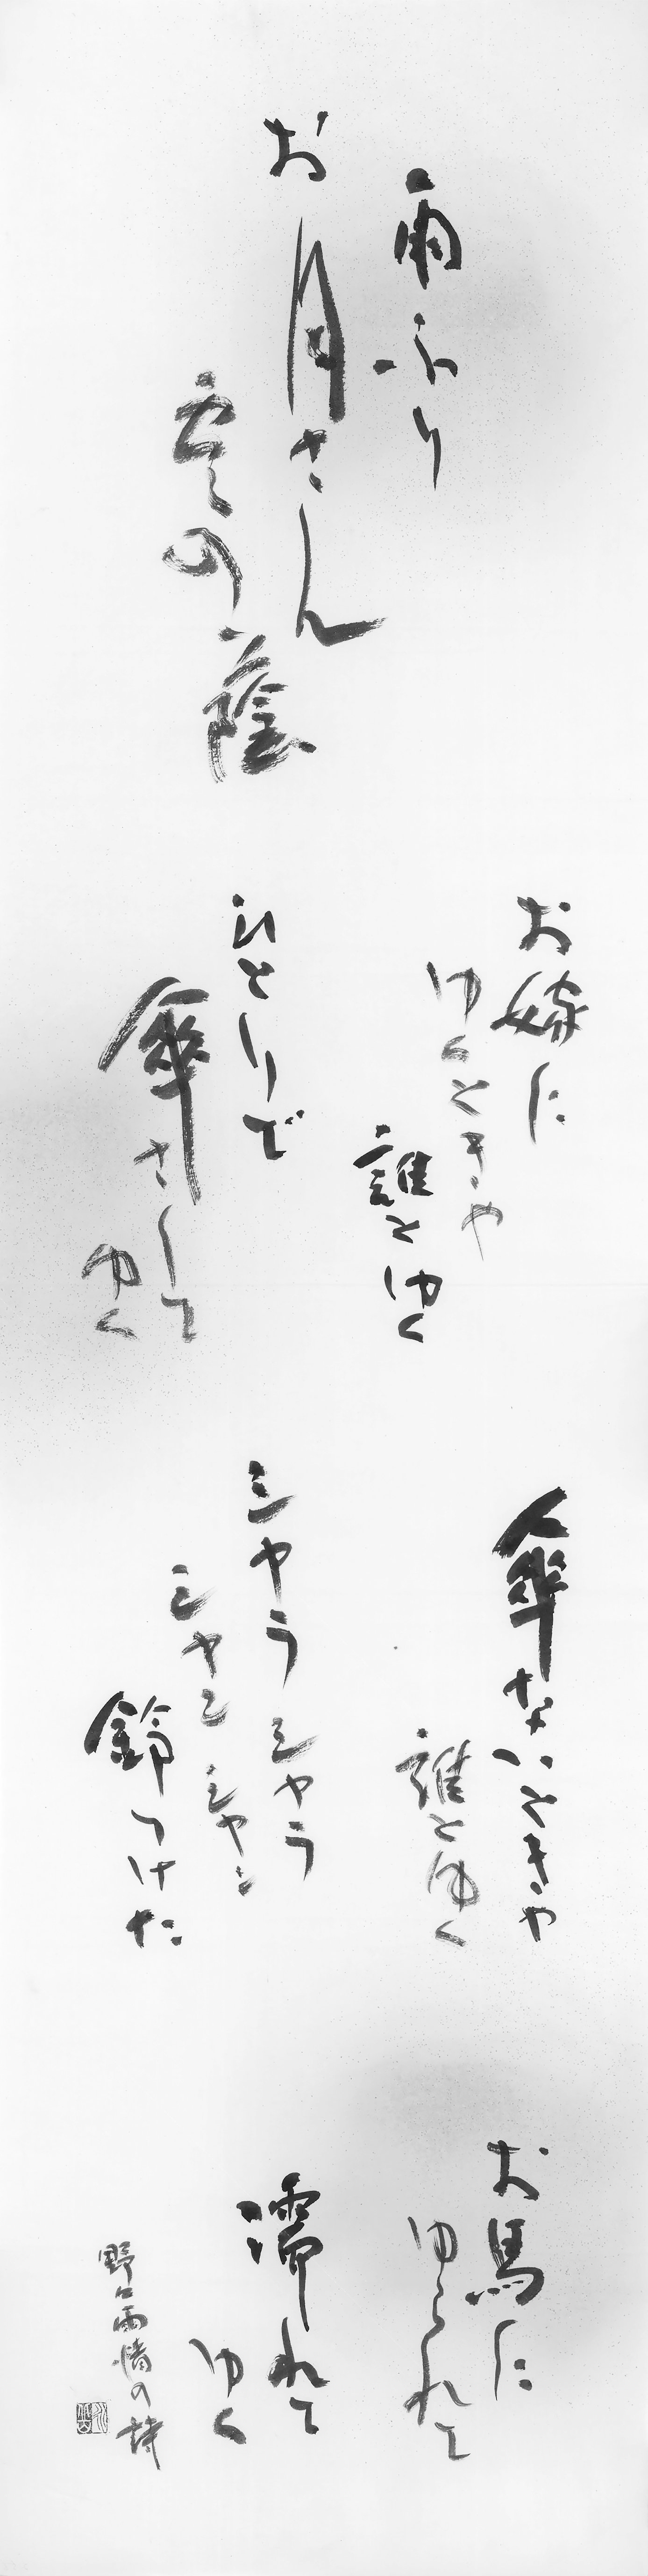 雨ふり
お月さん
雲の蔭
お嫁に
ゆくときや
誰とゆく
ひとりで
傘さして
ゆく
傘ないときや
誰とゆく
シヤラシヤラ
シヤンシヤン
鈴つけた
お馬に
ゆられて
濡れて
ゆく
野口雨情の詩